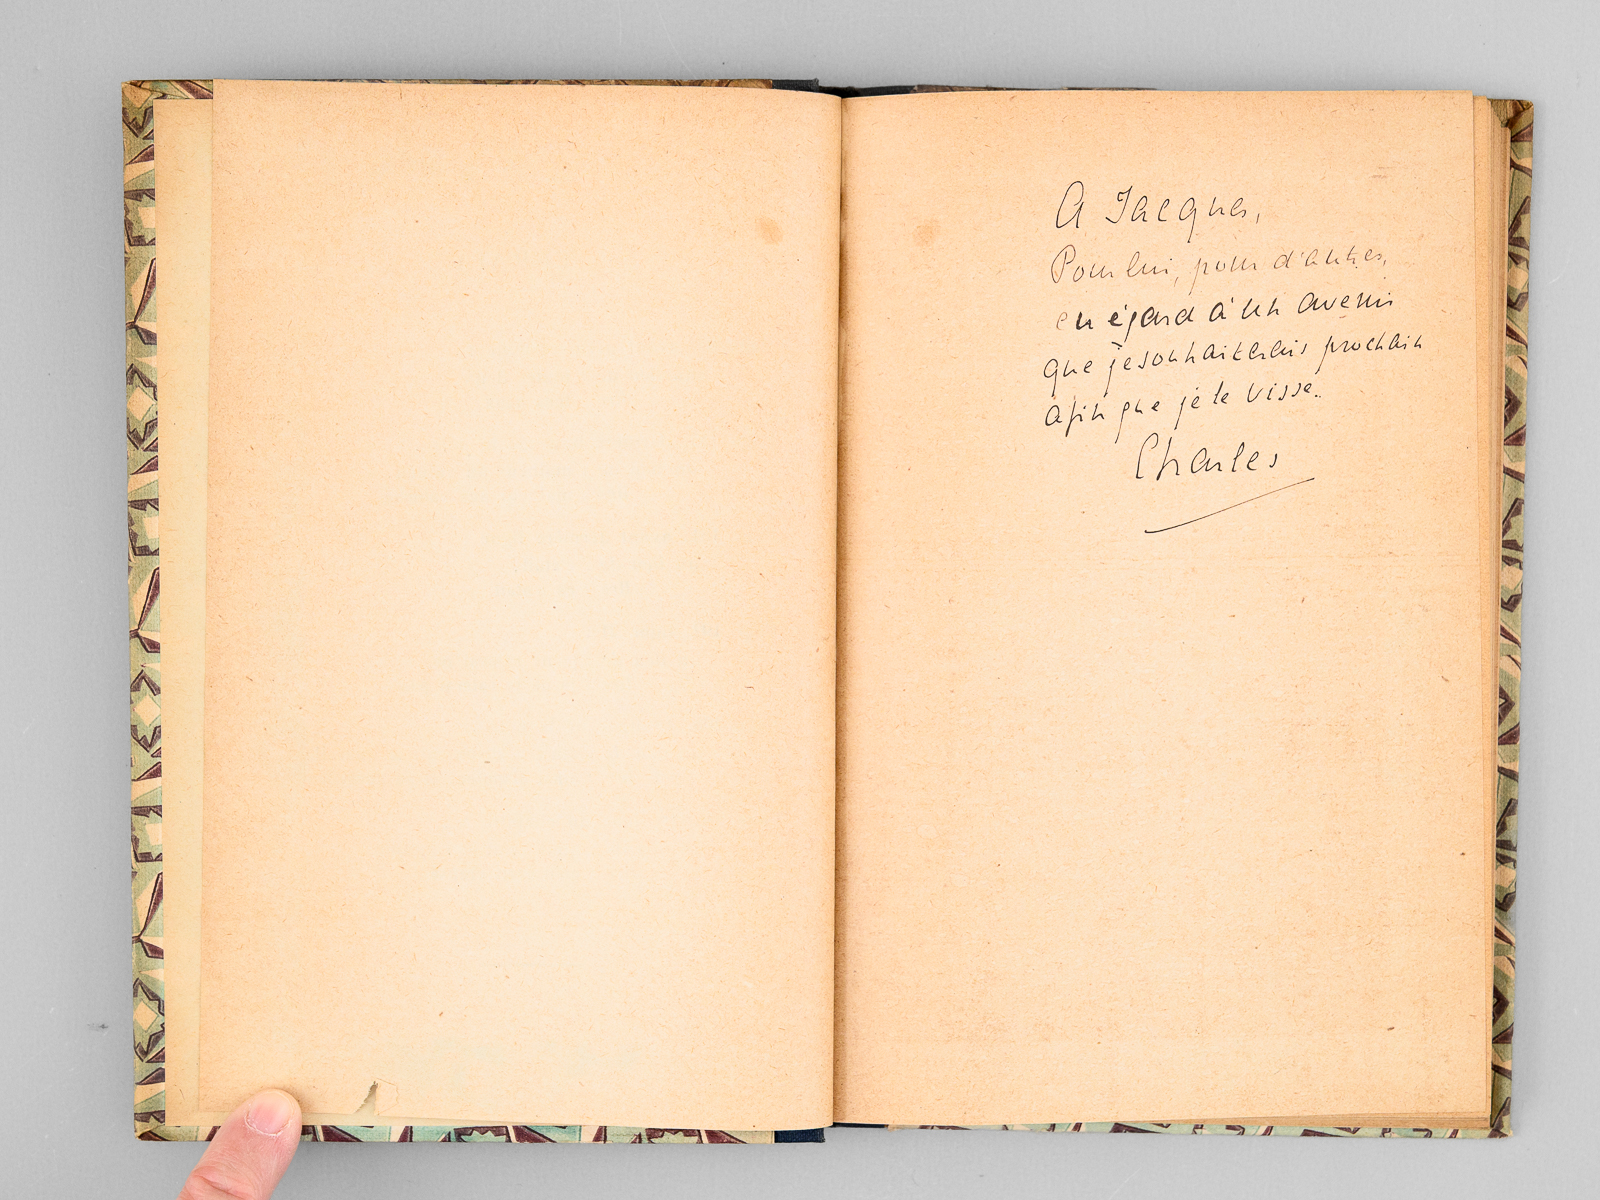 A Jacques,
Pour lui, pour d'autres,
eu égard à un avenir
que je souhaiterais prochain
afin que je le visse..
Charles